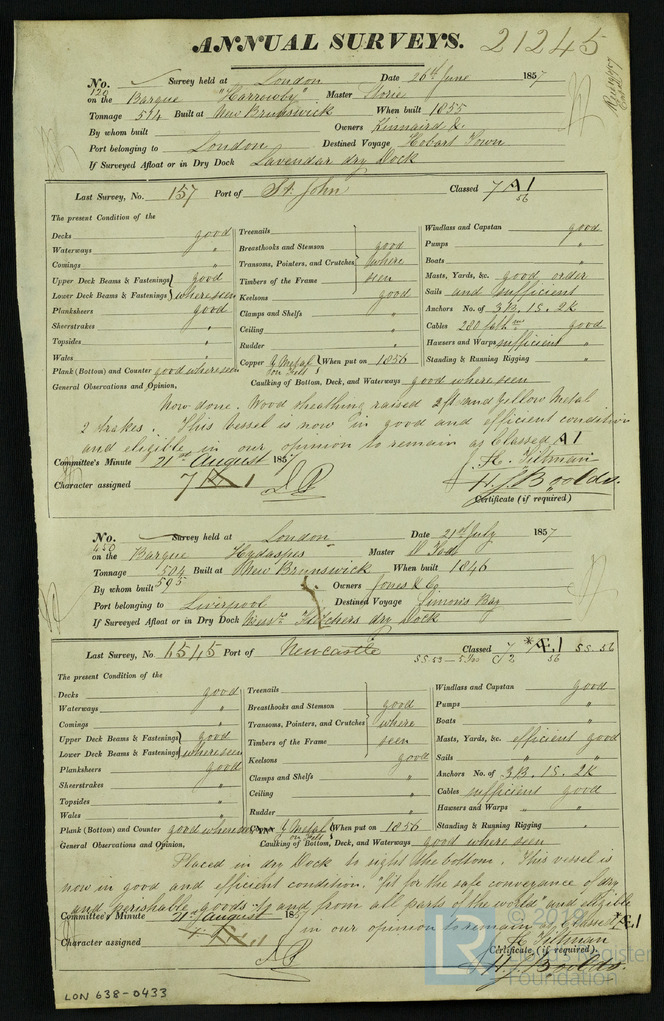 ANNUAL SURVEYS. 21245
No. 120 Survey held at London Date 26th June 1857
on the Barque "Harrowby" Master
Tonnage 574 Built at New Brunswick When built 1855
By whom built Owners Kinnaird &
Port belonging to London Destined Voyage Hobart Town
If Surveyed Afloat or in Dry Dock Lavendar dry Dock
Last Survey, No. 157 Port of St. John Classed 7 A1
56
The present Condition of the
Decks good
Waterways "
Comings "
Upper Deck Beams & Fastenings good
Lower Deck Beams & Fastenings where seen
Planksheers good
Sheerstrakes "
Topsides "
Wales "
Plank (Bottom) and Counter good where seen
Treenails
Breasthooks and Stemson good
Transoms, Pointers, and Crutches where
Timbers of the Frame seen
Keelsons good
Clamps and Shelfs "
Ceiling "
Rudder "
Copper Y Metal on Felt When put on 1856
Windlass and Capstan good
Pumps "
Boats "
Masts, Yards, &c. good order
Sails and sufficient
Anchors No. of 3B. 1S. 2K
Cables 280 fathms good
Hawsers and Warps sufficient "
Standing & Running Rigging "
General Observations and Opinion, Caulking of Bottom, Deck, and Waterways good where seen
Now done. Wood sheathing raised 2 ft and Yellow Metal
2 strakes. This Vessel is now in good and efficient condition
and eligible in our opinion to remain as Classed A1
Committee's Minute 21st August 1857
Character assigned 7 A1
Certificate (if required)
No. 450 Survey held at London Date 21st July 1857
on the Barque Hydaspes Master D Tod
Tonnage 504 Built at New Brunswick When built 1846
By whom built 595 Owners Jones & Co
Port belonging to Liverpool Destined Voyage Simons Bay
If Surveyed Afloat or in Dry Dock Messrs Fletchers dry Dock
Last Survey, No. 6545 Port of Newcastle Classed Æ1 SS. 56
The present Condition of the
Decks good
Waterways "
Comings "
Upper Deck Beams & Fastenings good
Lower Deck Beams & Fastenings where seen
Planksheers good
Sheerstrakes "
Topsides "
Wales "
Plank (Bottom) and Counter good where seen
Treenails
Breasthooks and Stemson good
Transoms, Pointers, and Crutches where
Timbers of the Frame seen
Keelsons good
Clamps and Shelfs "
Ceiling "
Rudder "
Y Metal on Felt When put on 1856
Windlass and Capstan good
Pumps "
Boats "
Masts, Yards, &c. efficient good
Sails " "
Anchors No. of 3B. 1S. 2K
Cables sufficient good
Hawsers and Warps " "
Standing & Running Rigging "
General Observations and Opinion, Caulking of Bottom, Deck, and Waterways good where seen
Placed in dry Dock to sight the bottom. This vessel is
now in good and efficient condition. "fit for the safe conveyance of dry
and perishable goods to and from all parts of the world" and eligible
Committee's Minute 21st August 1857 in our opinion to remain as Classed Æ1
Character assigned
Certificate (if required).
LON 638-0433
LR © 2019
Lloyd's Register
Foundation